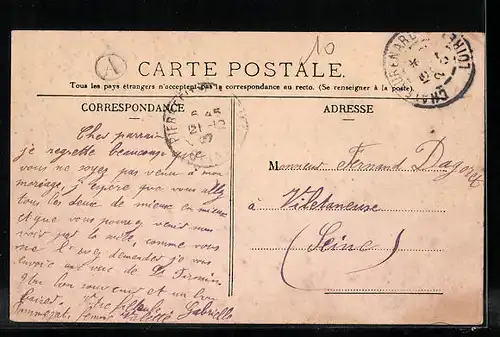 A
10
CARTE POSTALE.
Tous les pays étrangers n'acceptent pas la correspondance au recto. (Se renseigner à la poste).
CORRESPONDANCE
ADRESSE
Cher parrain
je regrette beaucoup que
vous ne soyez pas venu à mon
mariage, j'espère que vous allez
tous les deux de mieux en mieux
et que vous pourrez venir nous
voir par la suite, comme vous
me l'avez demandez je vous
envoie une vue de St Firmin
Un bon souvenir et un bon
baiser. Votre filleul
femme Gabrielle
Monsieur Fernand Dagory
à Viletaneuse
(Seine)